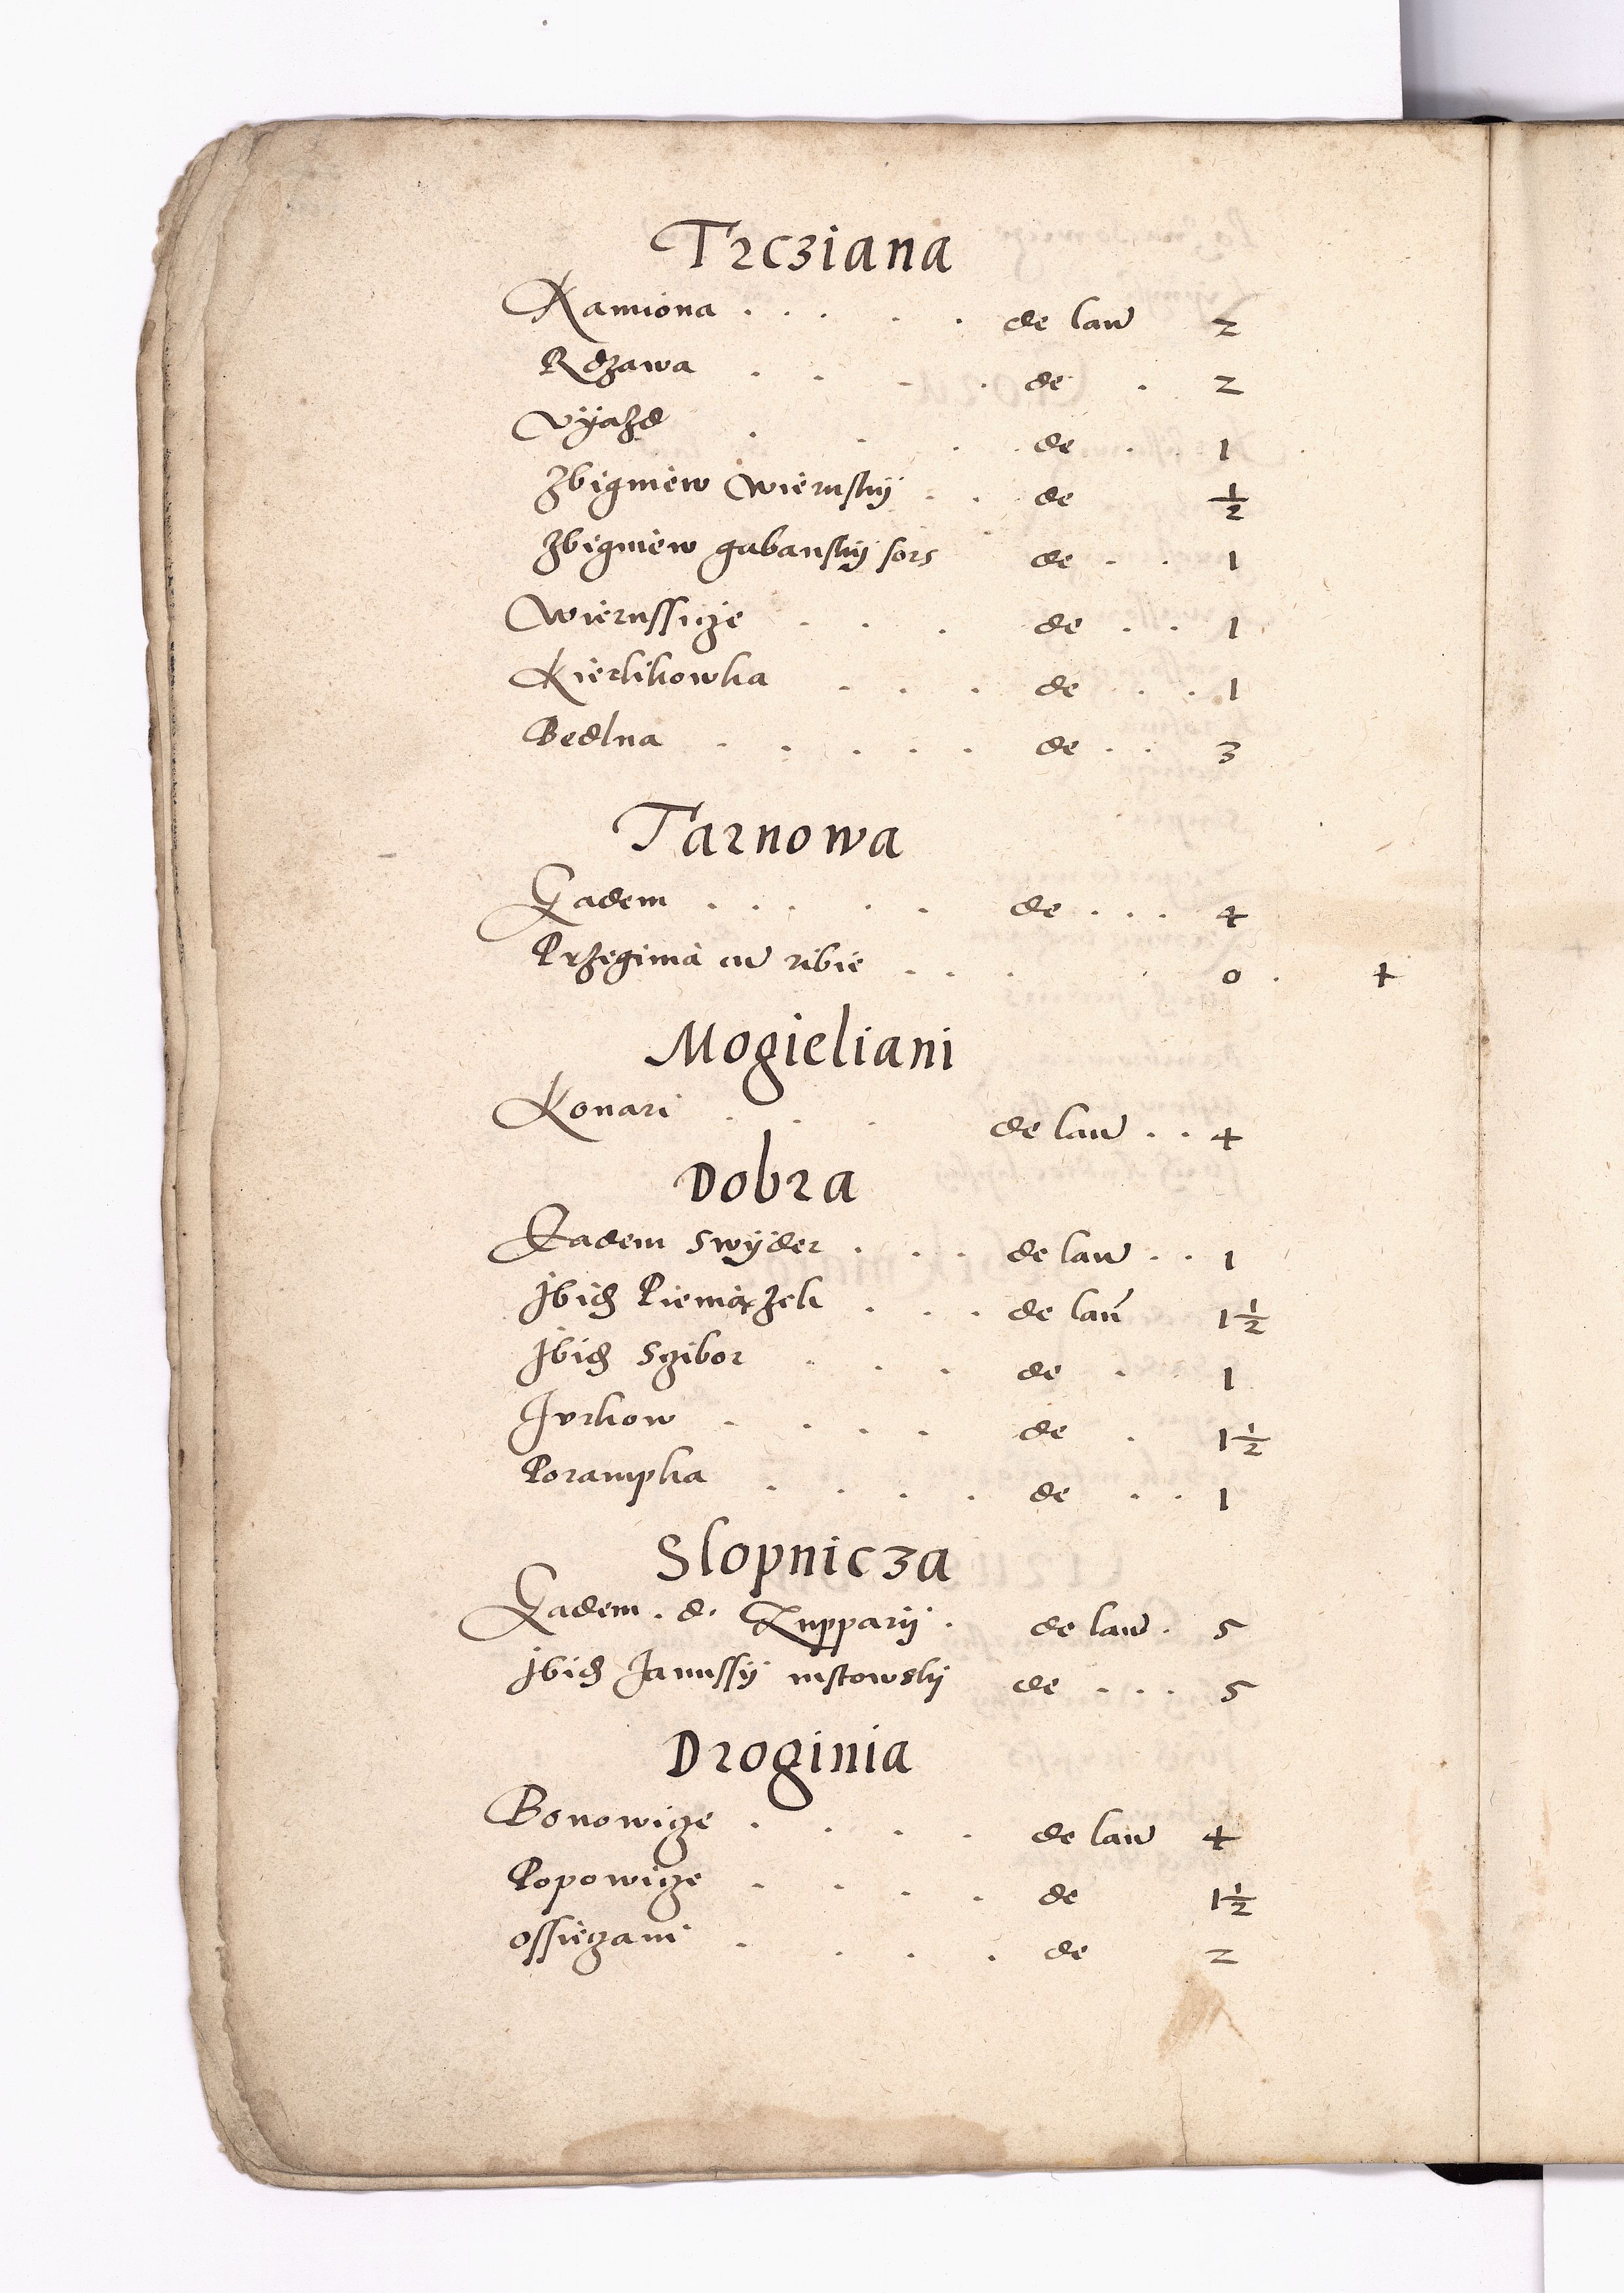 Trcziana
Kamiona . . . . . de lan̄ 2
Rdzawa . . . . de . 2
Vÿazd . . . . de . . 1
Zbigniew Wierusskÿ . . de ½
Zbigniew gabanskÿ sors de . . 1
Wierussicze . . . de . . 1
Kierlikowka . . . de . . 1
Bedlna . . . . . de . . 3
Tarnowa
Eadem . . . . . de . . . 4
Przeginia cū ribie . . . 0 . +
Mogieliani
Konari . . . de lan̄ . . 4
Dobra
Eadem Swÿder . . . de lan̄ . . 1
Ibid Pieniąžek . . . de lan̄ 1½
Ibid Sczibor . . . de . 1
Jvrkow . . . . de . 1½
Porampka . . . . de . . 1
Slopnicza
Eadem . d. Zupparÿ . de lan̄ . 5
Ibid Janussÿ de . . . 5
Droginia
Bonowicze . . . . de lan̄ 4
Popowicze . . . . de 1½
ossieczani . . . . de 2